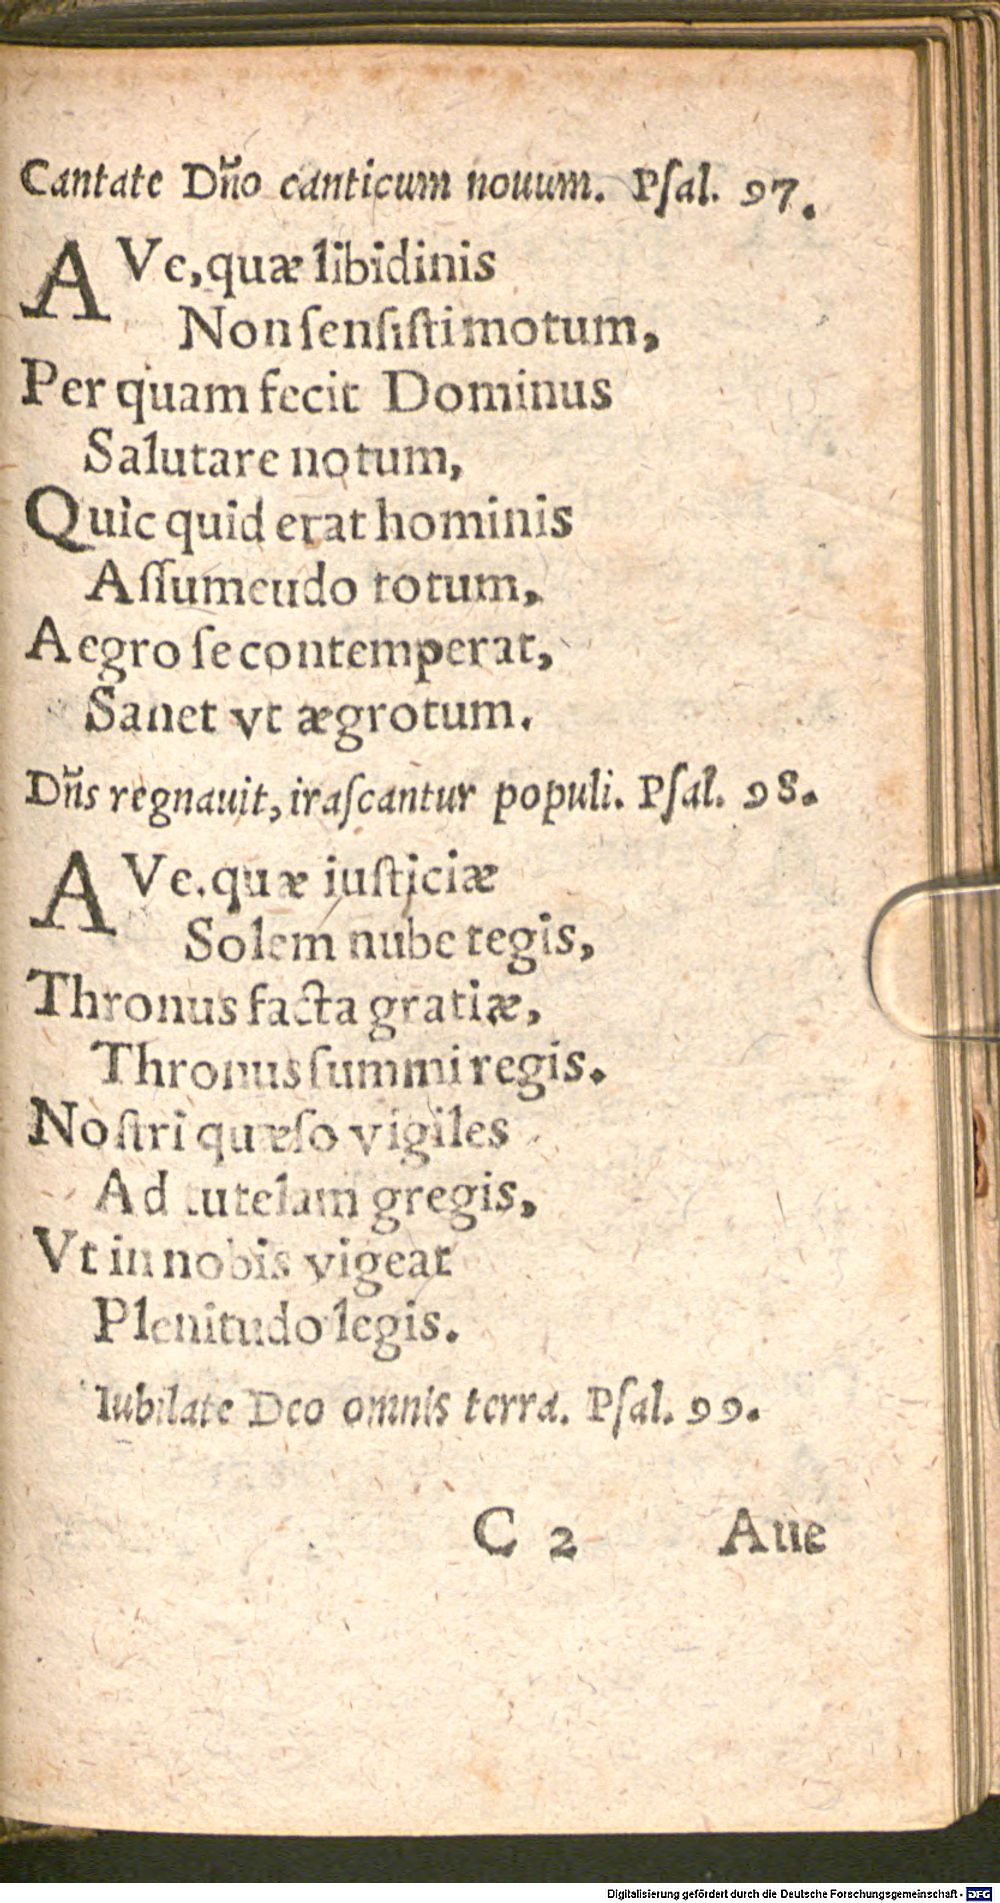 Cantate Dño canticum nouum. Pſal. 97.
AVe, quæ libidinis
Non ſenſiſti motum,
Per quam fecit Dominus
Salutare notum,
Quic quid erat hominis
Aſſumeudo totum,
Aegro ſe contemperat,
Sanet vt ægrotum.
Dñs regnauit, iraſcantur populi. Pſal. 98.
AVe. quæ iuſticiæ
Solem nube tegis,
Thronus facta gratiæ,
Thronus ſummi regis.
Noſtri quæſo vigiles
Ad tutelam gregis,
Vt in nobis vigeat
Plenitudo legis.
Iubilate Deo omnis terra. Pſal. 99.
C 2 Aue
Digitalisierung gefördert durch die Deutsche Forschungsgemeinschaft - DFG